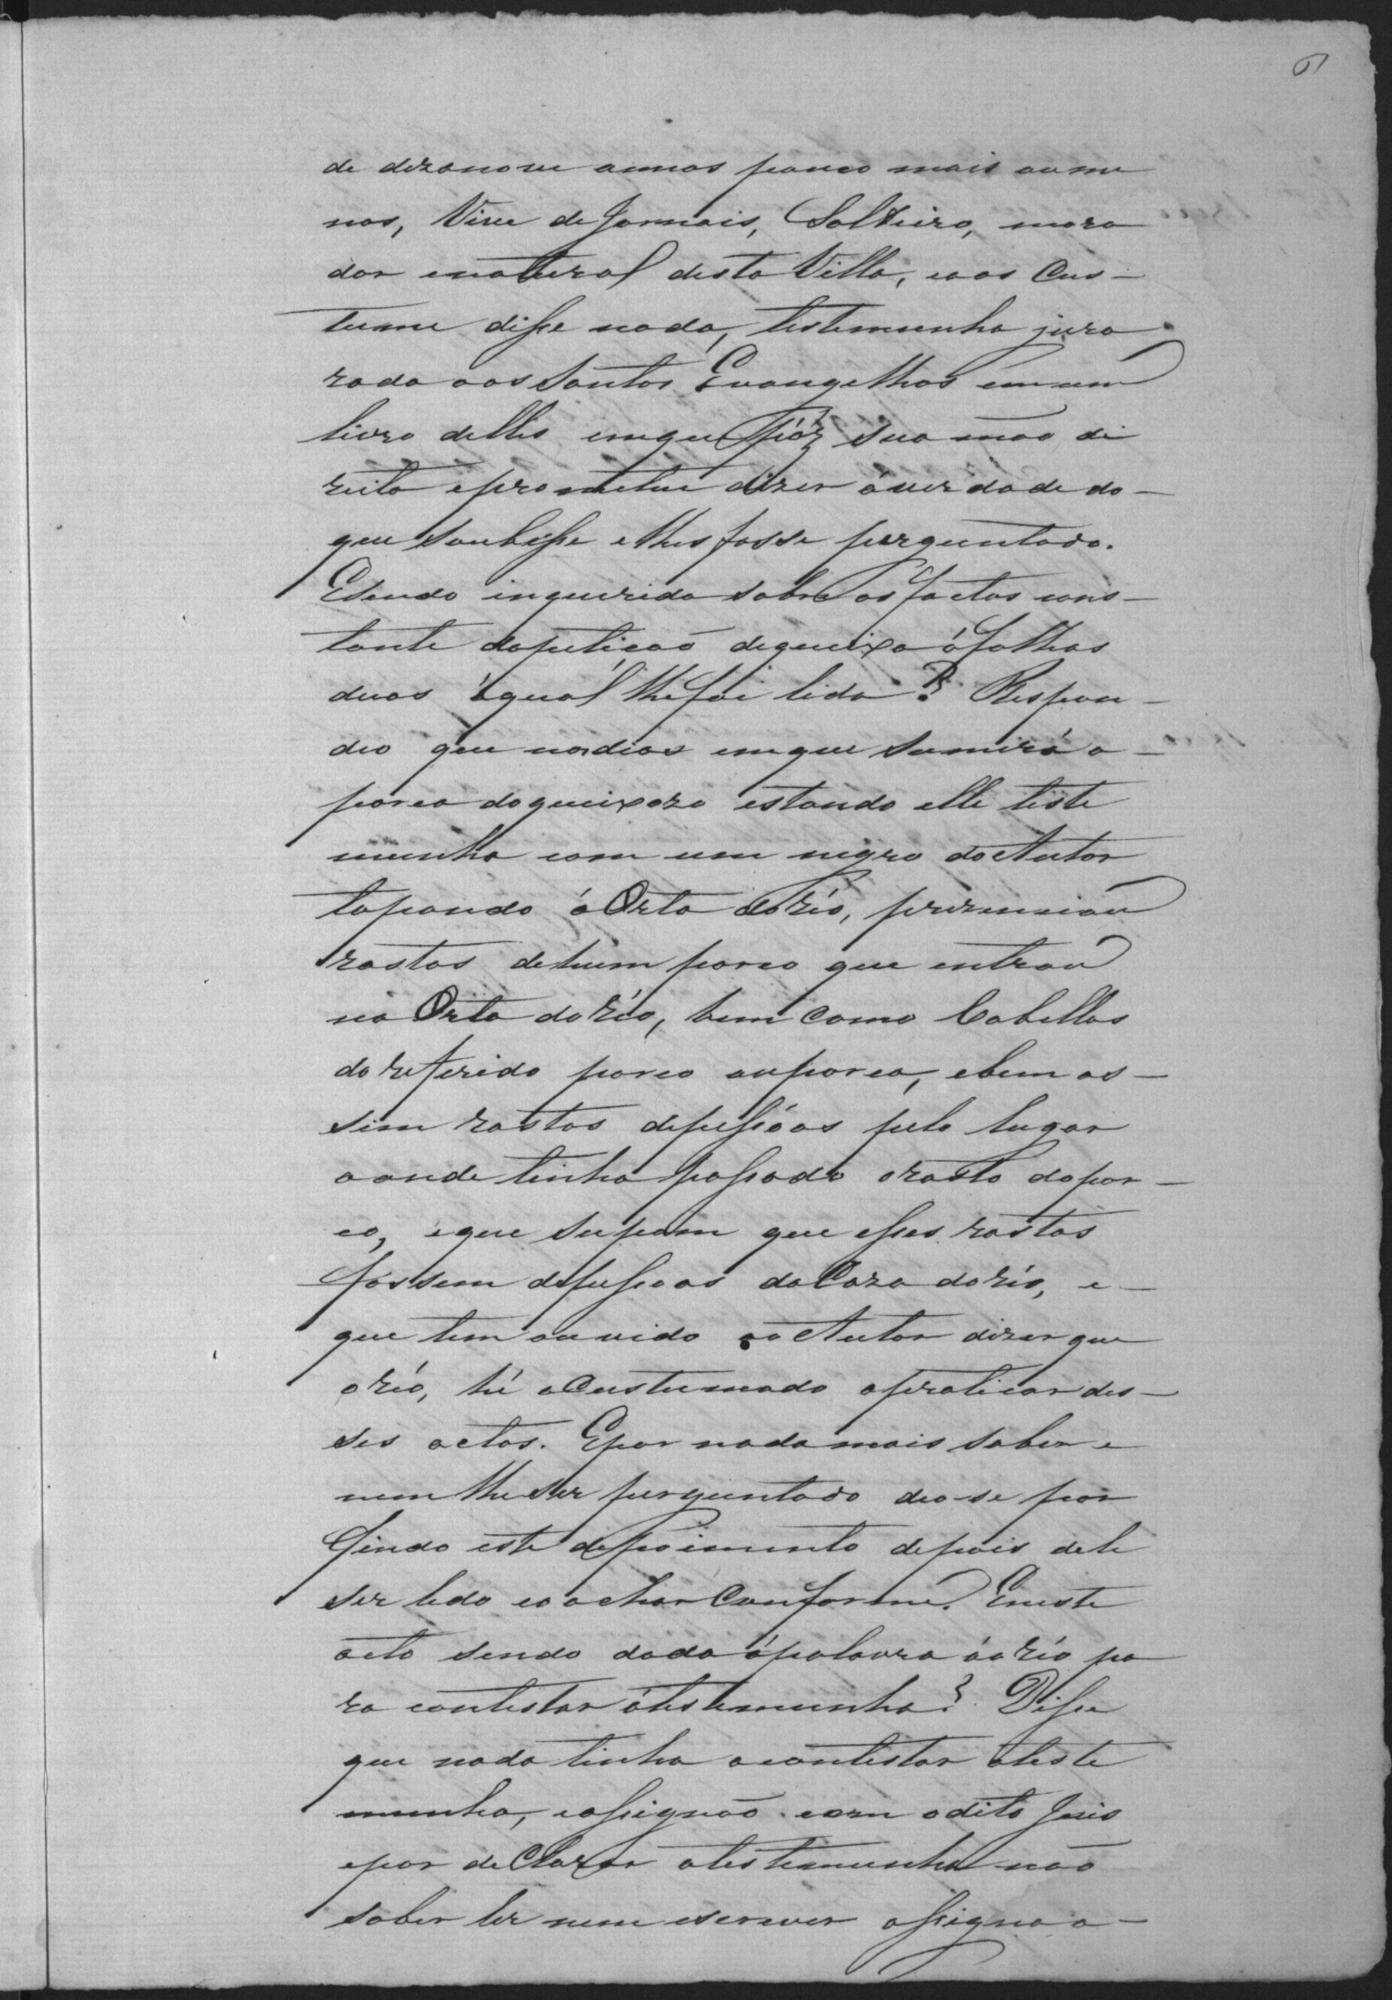 6
de dezanove annos pouco mais ou me
nos, Vive de Jornais, Solteiro, mora
dor enatural desta Villa, eaos Cus-
tume disse nada, testemunha jura
rada aos Santos Evangelhos em um
livro delles emque pôz sua mão di
reita eprometeu dizer averdade do-
que soubesse elhes fosse perguntado.
Esendo inquerida sobre os factos cons-
tante dapetição dequeixa áfolhas
duas áqual lhe foi lida? Respon-
deo que nodias emque sumirá a-
porca doqueixozo estando elle teste
munha com um negro do Autor
tapando áOrta doréo, prezenciou
rastos dehum porco que entrou
na Orta doréo, bem como Cabellos
doreferido porco ouporca, ebem as-
sim rastos depessôas pelo lugar
aonde tinha passado orasto dopor-
co, eque supoem que esses rastos
fossem depessoas daCaza doréo, e-
que tem ouvido ao Autor dizer que
oréo, hé aCustumado apraticar des-
ses actos. Epor nada mais saber e
nem lhe ser perguntado deo-se por
findo este depoimento depois dele
ser lido eoachar Conforme. Eneste
acto sendo dada ápalavra áoréo pa
ra contestar átestemunha? Disse
que nada tinha acontestar ateste
munha, eassignão com odito Juis
epor declarar atestemunha não
saber ler nem escrever assigna a-